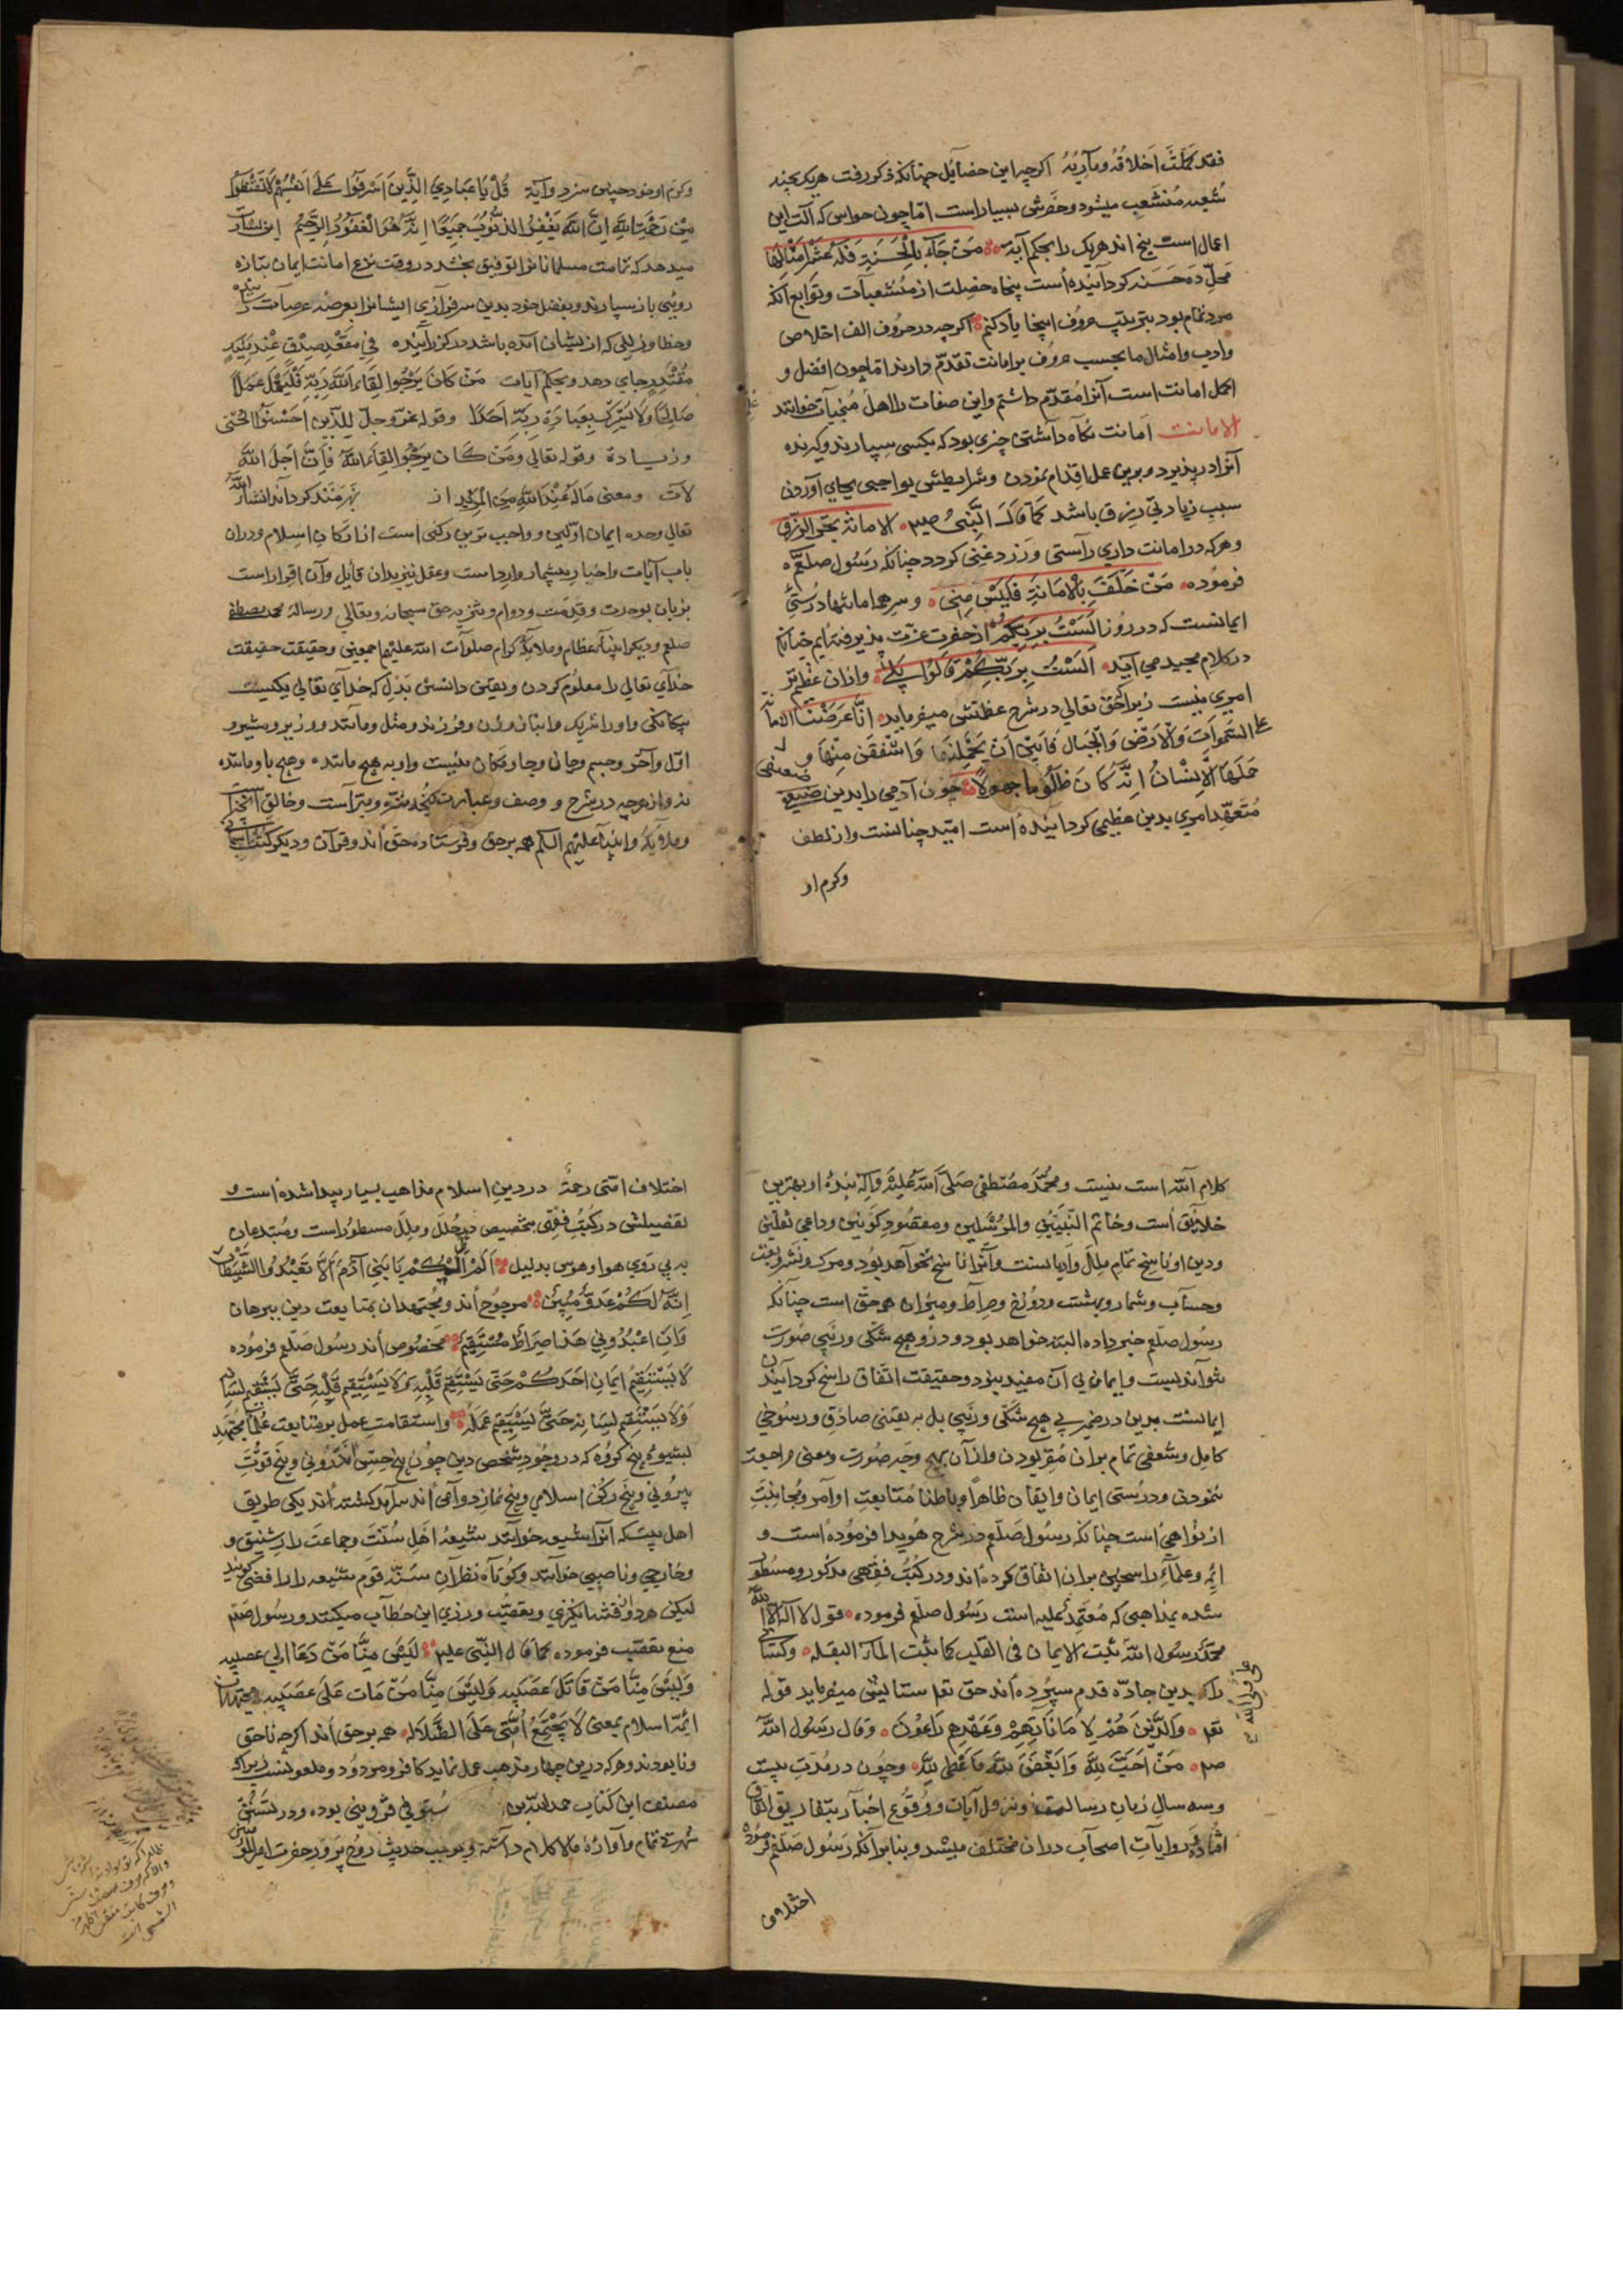 فقد کملت اخلاقه ومآربه اکرچه این خصایل چنانکه ذکر رفت هریک بچند
شعبه منشعب میشود وحصرش بسیار است امّا چون حواس که آلت این
اعمال است پنج اند هریک را بحکم آیه من جآء بالحسنة فله عشر امثالها
محلّ ده حسنه کردانیده است پنجاه خصلت از منشعبات وتوابع آنکه
مرد تمام بود بترتیب حروف اینجا یاد کنم اکرچه در حروف الف اخلاص
وادب وامثال ما بحسب حروف بر امانت تقدّم دارند امّا چون افضل و
اکمل امانت است آنرا مقدّم داشتم واین صفات را اهل منجیات خوانند
الامانت امانت نکاه داشتن چیزی بود که بکسی سپارند وکیرنده
آنرا درپذیرد وبرین عمل اقدام نمودن وشرایطش بواجبی بجای آوردن
سبب زیادتی رزق باشد کما قال النّبی صلم الامانة تجر الرّزق
وهرکه در امانت داری راستی ورزد غنی کردد چنانکه رسول صلعم
فرموده من خلف بالامانة فلیس منی وسر همه امانتها درستئ
ایمانست که در روز الست بربکم از حضرت عزت پذیرفته ایم چنانکه
در کلام مجید می آید الست بربّکم قالوا بلی واز آن عظیم تر
امری نیست زیرا که حق تعالی در شرح عظمتش میفرماید انّا عرضنا الامانة
علی السّموات والارض والجبال فابین ان یحملنها واشفقن منها و
حملها الانسان انّه کان ظلوما جهولا چون آدمی را بدین ضعیفی
متعهّد امری بدین عظیمی کردانیده است امّید چنانست واز لطف
وکرم او
وکرم او خود چنین سزد وآیة قل یا عبادی الّذین اسرفوا علی انفسهم لا تقنطوا
من رحمت الله ان الله یغفر الذنوب جمیعا انه هو الغفور الرحیم این بشارت
میدهد که تمامت مسلمانانرا توفیق بخشد در وقت نزع امانت ایمان بتازه
روئی باز سپارند وبفضل خود بدین سرفرازی ایشانرا بعرصه عرصات رساند
وخطا وزللی که ازیشان آمده باشد درکذرانیده فی مقعد صدق عند ملیک
مقتدر جای دهد وبحکم آیات من کان یرجوا لقاء الله ربّه فلیعمل عملا
صالحا ولا یشرک بعبادة ربّه احدا وقوله عزّ وجلّ للّذین احسنوا الحسنی
وزیادة وقوله تعالی ومن کان یرجوا لقاء الله فانّ اجل الله
لآت ومعنی ما له عند الله من المزید از بهرمند کرداند انشاء الله
تعالی وحده ایمان اوّلین وواجب ترین رکنی است از ارکان اسلام ودر آن
باب آیات واخبار بیشمار وارد است وعقل نیز بدان قایل وآن اقرار است
بزبان بوحدت وقدمت ودوام وتنزیه حق سبحانه وتعالی ورسالة محمد مصطفی
صلعم ودیکر انبیآء عظام وملایکه کرام صلوات الله علیهم اجمعین وحقیقت حقیقت
خدآی تعالی را معلوم کردن وبیقین دانستن بدل که خدآی تعالی یکیست
بیکانکی واو را شریک وانباز وزن وفرزند ومثل ومانند ووزیر ومشیر و
اوّل وآخر وجسم وجان وجا ومکان نیست واو به هیچ مانند وهیچ باو مانند
نه واز هرچه در شرح ووصف وعبارت کنجد منزّه ومبرّاست وخالق
وملایکه وانبیآ علیهم السلم همه برحق وفرستاده حق اند وقرآن ودیکر کتب آسمانی
کلام الله است نیست ومحمّد مصطفی صلّی الله علیه وآله بنده او بهترین
خلایق است وخاتم النّبیّین والمرسلین ومقصود کونین وداعی ثقلین
ودین او ناسخ تمام ملل وادیانست وآنرا ناسخ نخواهد بود ومرک ونشر وبعث
وحساب وشمار وبهشت ودوزخ وصراط ومیزان همه حقّ است چنانکه
رسول صلّعم خبر داده البته خواهد بود ودرو هیچ شکی وریبی صورت
نتواند بست وایمان بی آن مفید نبود وحقیقت اتّفاق راسخ کردانیدن
ایمانست بدین در ضمیر بی هیچ شکّی وریبی بل به یقینی صادق ورسوخی
کامل وشعفی تمام بر آن مقر بودن واز آن بهیچ وجه صورت ومعنی مراجعت
ننمودن ودرستی ایمان وایقان ظاهرا وباطنا متابعت اوآمر ومجانبت
از نواهی است چنانکه رسول صلّعم در شرح هویدا فرموده است و
ائمه وعلمآء راسخین بر آن اتفاق کرده اند ودر کتب فقهی مذکور ومسطور
شده بمذاهبی که معتمد علیه است رسول صلّعم فرموده قول لا اله الا الله
محمّد رسول الله یثبت الایمان فی القلب کما یثبت المآء البقله وکسانی
را که بدین جادّه قدم سپرده اند حق تعا ستایش میفرماید قوله
تعا والّذین هم لاماناتهم وعهدهم راعون وقال رسول الله
صلم من احبّ لله وابغض لله واعطی لله وچون در مدّت بیست
وسه سال زمان رسالت ونزول آیات ووقوع اخبار بتفاریق اتّفاق
افتاده وروایات اصحاب در آن مختلف میشد وبنابر آنکه رسول صلّعم فرموده
اختلاف
اختلاف امّتی رحمة در دین اسلام مذاهب بسیار پیدا شده است و
تفصیلش در کتب فقهی بتخصیص در ملل مسطور است ومبتدعان
به پی روی هوا وهوس بدلیل الم اعهد الیکم یا بنی آدم الّا تعبدوا الشّیطان
انّه لکم عدوّ مبین مرجوح اند ومجتهدان بمتابعت دین ببرهان
وان اعبدونی هذا صراط مستقیم مخصوص اند رسول صلّعم فرموده
لا یستقیم ایمان احدکم حتی یستقیم قلبه ولا یستقیم قلبه حتّی یستقیم لسانه
ولا یستقیم لسانه حتّی یستقیم عمله واستقامت عمل بر متابعت علمآء مجتهد
بشیوه پنج کروه که در وجود شخص دین چون پنج حسّ اندرونی وپنج قوّت
بیرونی وپنج رکن اسلامی وپنج نماز دوامی اند سرآمد کشته اند یکی طریق
اهل بیت که آنرا شیعه خوانند شیعه اهل سنّت وجماعت را شنیق و
وخارجی وناصبی خوانند وکوتآه نظرآن سنّه قوم شیعه را رافضی کویند
لیکن هر دو فتنه انکیزی وبتعصّب ورزی این خطاب میکنند ورسول صلعم
منع تعصّب فرموده کما قال النّبی علیه لیس منّا من دعا الی عصبیه
ولیس منّا من قاتل عصبیه ولیس منّا من مات علی عصبیه مجتهدان
ائمّه اسلام بمعنی لا یجتمع امّتی علی الضّلاله همه برحق اند اکرچه ناحق
ونابودند وهرکه درین چهار مذهب عمل نماید کافر ومردود وملعون نیست زیرا که
مصنف این کتاب حمد الله بن مستوفی قزوینی بوده ودر تسنّن